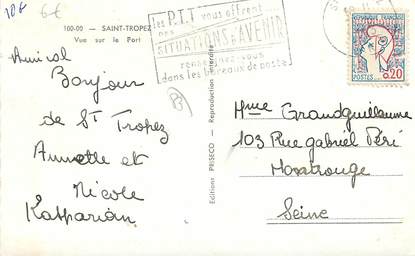 10€ 6€
100-00 — SAINT-TROPEZ
Vue sur le Port
Amical
Bonjour
de St Tropez
Annette et
Nicole
Kasparian
les P.T.T vous offrent
des
SITUATIONS D'AVENIR
renseignez-vous
dans les bureaux de poste
Editions PRISECO — Reproduction interdite
REPUBLIQUE FRANÇAISE
POSTES 0,20
Mme Grandguillaume
103 Rue gabriel Péri
Montrouge
Seine